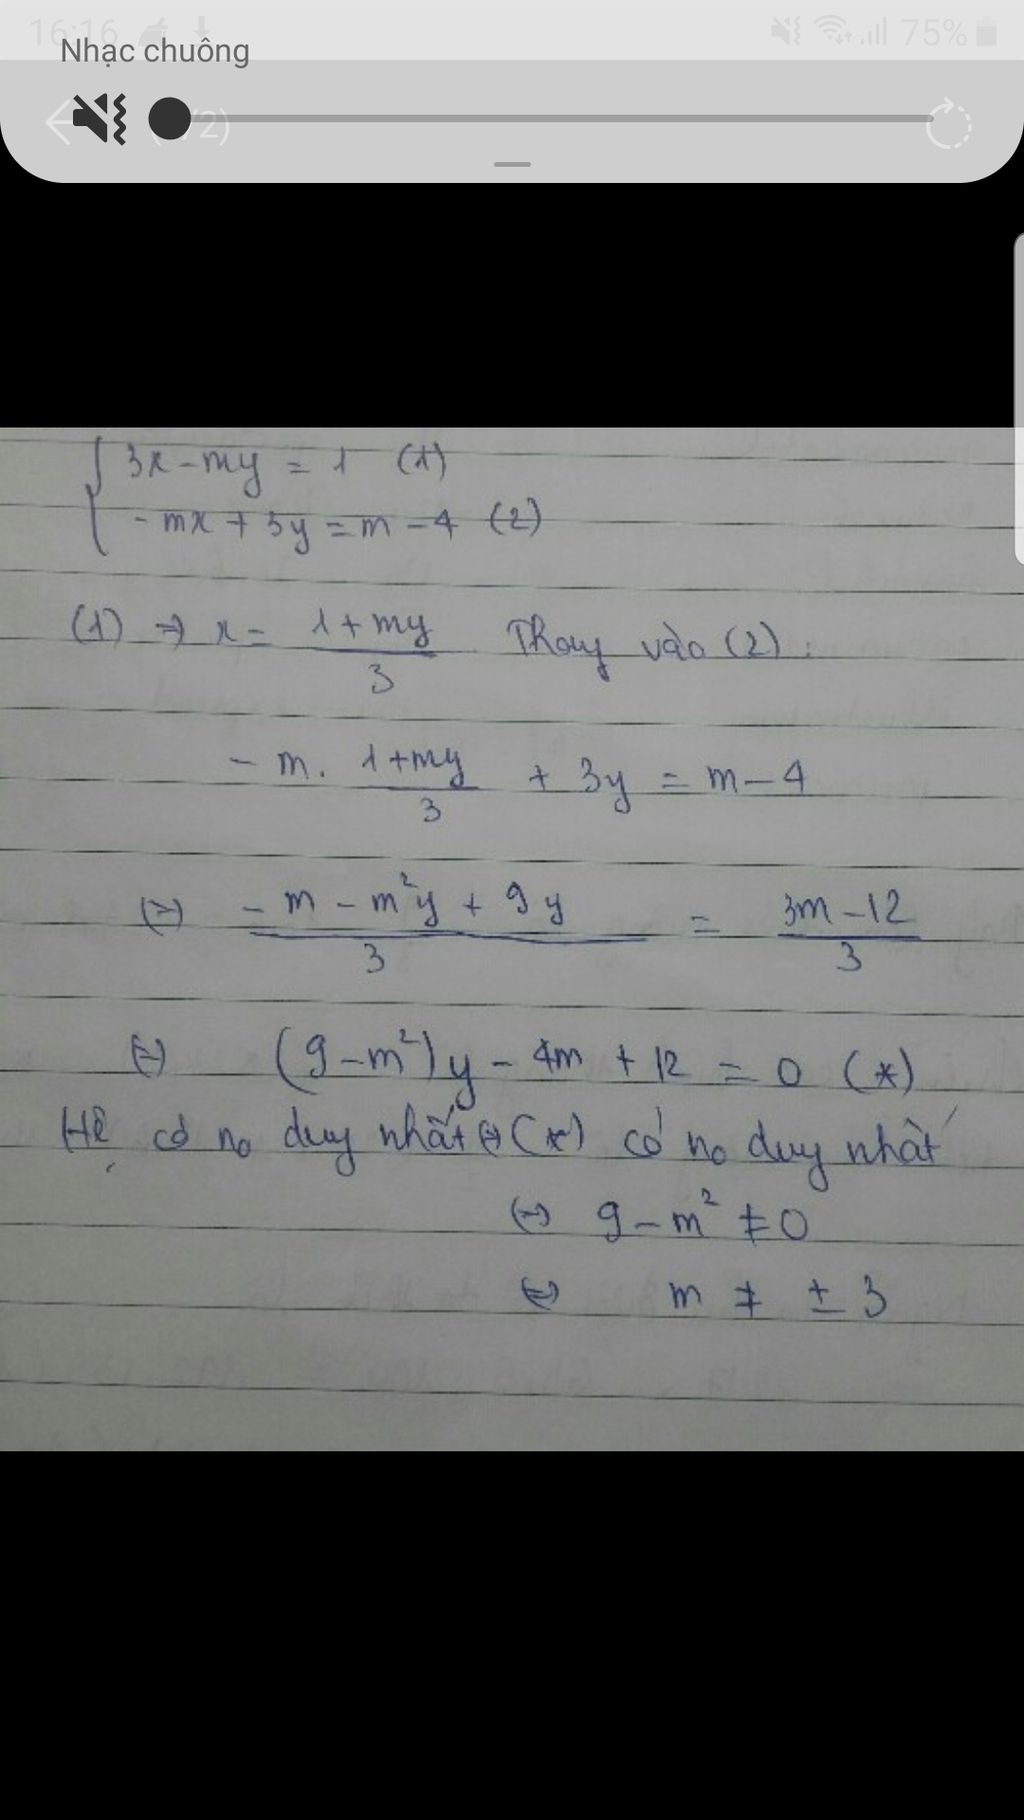 16:16 75%
Nhạc chuông
/2)
{ 3x - my = 1 (1)
- mx + 3y = m - 4 (2)
(1) ⇒ x = (1 + my)/3 Thay vào (2) :
- m. (1 + my)/3 + 3y = m - 4
(=) (- m - m²y + 9y)/3 = (3m - 12)/3
(=) (9 - m²)y - 4m + 12 = 0 (*)
Hệ có no duy nhất (=) (*) có no duy nhất
(=) 9 - m² ≠ 0
(=) m ≠ ± 3